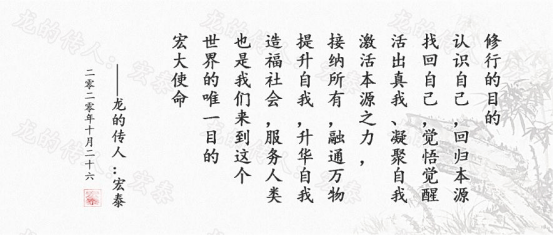 修行的目的
认识自己,回归本源
找回自己,觉悟觉醒
活出真我、凝聚自我
激活本源之力,
接纳所有,融通万物
提升自我,升华自我
造福社会,服务人类
也是我们来到这个
世界的唯一目的
宏大使命
——龙的传人:宏泰
二零二零年十月二十六
龙的传人:宏泰